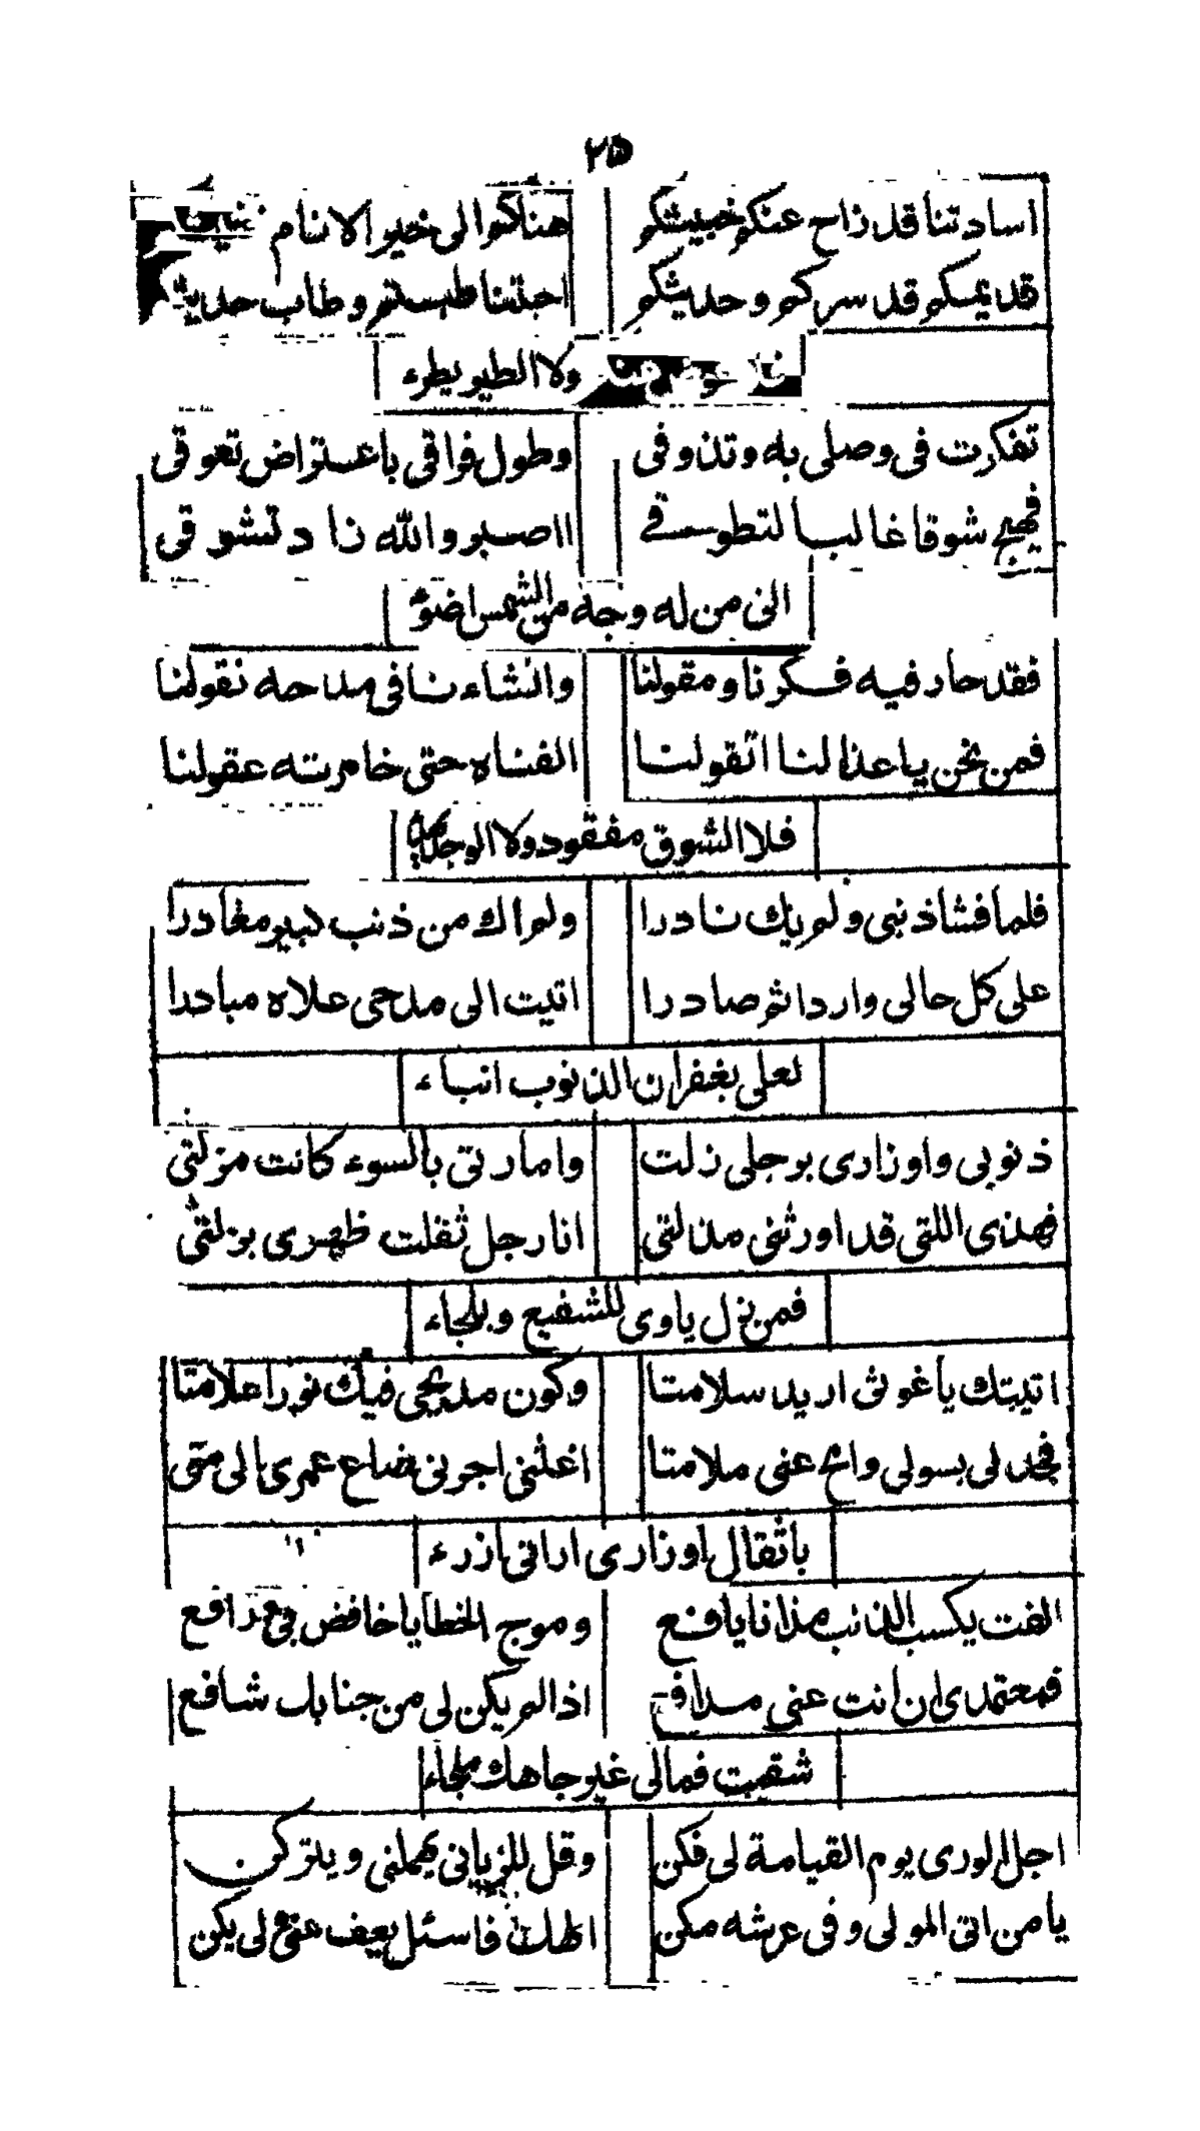 ٢٥
اسادتنا قد زاح عنكم خبيثكم هنا كموا لى خير الانام
قديمكم قد سركم وحديثكم احبتنا طبستم وطاب حديثكم
ولا الطير يطرء
تفكرت فى وصلى به وتذوقى وطول فراقى باعتراض تعوقى
فهيج شوقا غالبا لتطوسقى ااصبر والله زاد تشوقى
الى من له وجه من الشمس اضوء
فقد حار فيه فكرنا ومقولنا وانشاءنا فى مداحه نقولنا
فمن نحن ياعذالنا اتقولنا الفناه حتى خامرته عقولنا
فلا الشوق مفقود ولا الوجد
فلما فشا ذنبى ولم يك نادرا ولم اك من ذنب كبير مغادرا
على كل حالى واردا ثم صادرا اتيت الى مدحى علاه مبادرا
لعلى بغفران الذنوب انباء
ذنوبى واوزارى برجلى زلت وامارتى بالسوء كانت مزلتى
فهذى اللتى قد اورثنى مذلتى انا رجل ثقلت ظهرى بزلتى
فمن يزل ياوى للشفيع ويلجاء
اتيتك ياغوثى اريد سلامتا وكون مديحى فيك نورا علامتا
فجد لى بسولى وامح عنى ملامتا اغثنى اجرنى ضاع عمرى الى متى
باثقال اوزارى ارانى ازرء
الفت بكسب الذنب مذ انا يافع وموج الخطايا خافض بى ورافع
فمعتمدى ان انت عنى مدافع اذا لم يكن لى من جنابك شافع
شقيت فمالى غير جاهك ملجاء
اجل الورى يوم القيامة لى فكن وقل للزبانى يهملنى ويتركن
يا من اتى المولى وفى عرشه مكن الهك فاسئل يعف عنى لى يكن